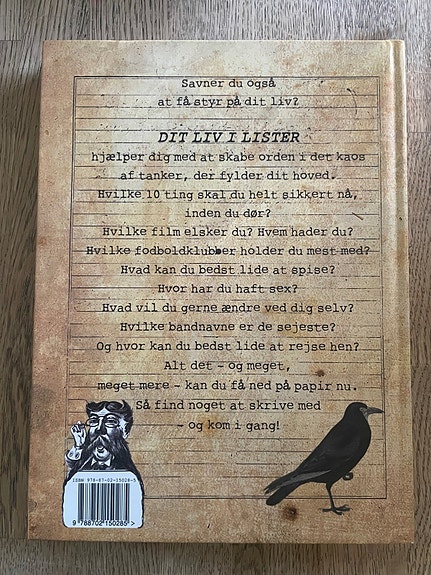 Savner du også
at få styr på dit liv?
DIT LIV I LISTER
hjælper dig med at skabe orden i det kaos
af tanker, der fylder dit hoved.
Hvilke 10 ting skal du helt sikkert nå,
inden du dør?
Hvilke film elsker du? Hvem hader du?
Hvilke fodboldklubber holder du mest med?
Hvad kan du bedst lide at spise?
Hvor har du haft sex?
Hvad vil du gerne ændre ved dig selv?
Hvilke bandnavne er de sejeste?
Og hvor kan du bedst lide at rejse hen?
Alt det – og meget,
meget mere – kan du få ned på papir nu.
Så find noget at skrive med
– og kom i gang!
ISBN 978-87-02-15028-5
9 788702 150285 >